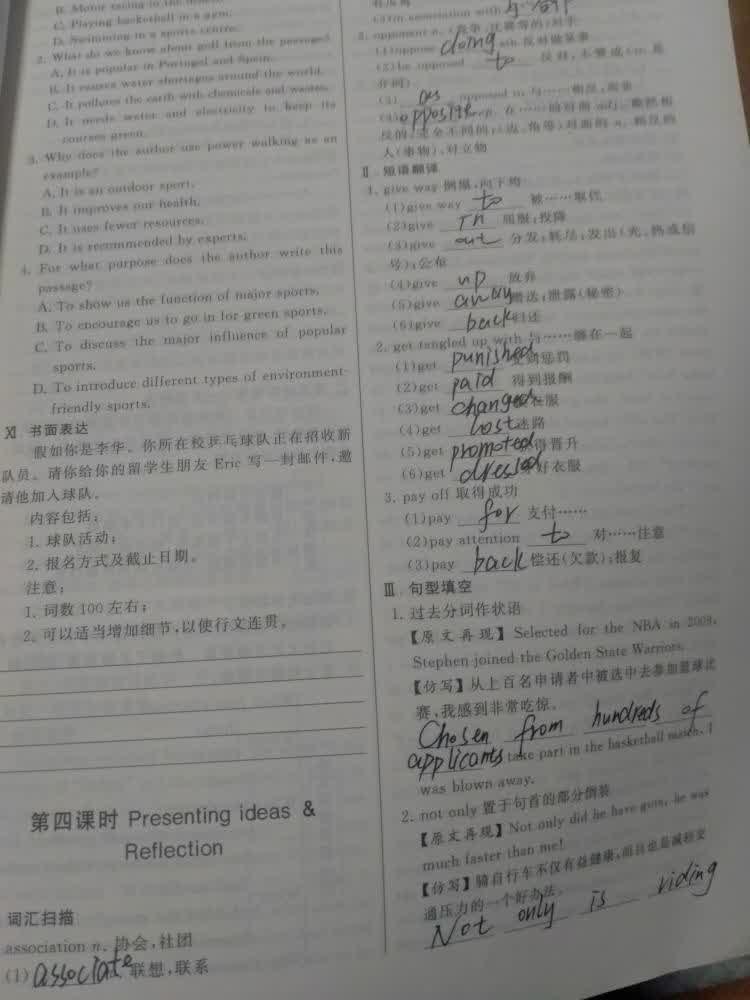 B. Motor racing in the
C. Playing basketball in a gym.
D. Swimming in a sports centre.
2. What do we know about golf from the passage?
A. It is popular in Portugal and Spain.
B. It causes water shortages around the world.
C. It pollutes the earth with chemicals and wastes.
D. It needs water and electricity to keep its
courses green.
3. Why does the author use power walking as an
example?
A. It is an outdoor sport.
B. It improves our health.
C. It uses fewer resources.
D. It is recommended by experts.
4. For what purpose does the author write this
passage?
A. To show us the function of major sports.
B. To encourage us to go in for green sports.
C. To discuss the major influence of popular
sports.
D. To introduce different types of environment-
friendly sports.
Ⅺ. 书面表达
假如你是李华。你所在校乒乓球队正在招收新
队员。请你给你的留学生朋友 Eric 写一封邮件,邀
请他加入球队。
内容包括:
1. 球队活动;
2. 报名方式及截止日期。
注意:
1. 词数 100 左右;
2. 可以适当增加细节,以使行文连贯。
第四课时 Presenting ideas &
Reflection
词汇扫描
association n. 协会,社团
(1) associate 联想,联系
in association with 与…合作
opponent n.
(1)oppose doing sth 反对做某事
(2)be opposed to 反对
(3) as opposed to 与……相反
(4) opposite prep. 在……的对面
人(事物),对立物
Ⅱ. 短语翻译
1. give way 倒塌,向下垮
(1)give way to 被……取代
(2)give in 屈服;投降
(3)give out 分发;耗尽;发出(光、热或信
号);公布
(4)give up 放弃
(5)give away 赠送;泄露(秘密)
(6)give back 归还
2. get tangled up with 与……缠在一起
(1)get punished 受到惩罚
(2)get paid 得到报酬
(3)get changed 换衣服
(4)get lost 迷路
(5)get promoted 获得晋升
(6)get dressed 穿好衣服
3. pay off 取得成功
(1)pay for 支付……
(2)pay attention to 对……注意
(3)pay back 偿还(欠款);报复
Ⅲ. 句型填空
1. 过去分词作状语
【原文再现】Selected for the NBA in 2009,
Stephen joined the Golden State Warriors.
【仿写】从上百名申请者中被选中去参加篮球比
赛,我感到非常吃惊。
Chosen from hundreds of
applicants take part in the basketball match, I
was blown away.
2. not only 置于句首的部分倒装
【原文再现】Not only did he have guts, he was
much faster than me!
【仿写】骑自行车不仅有益健康,而且也是减轻交
通压力的一个好办法。
Not only is riding